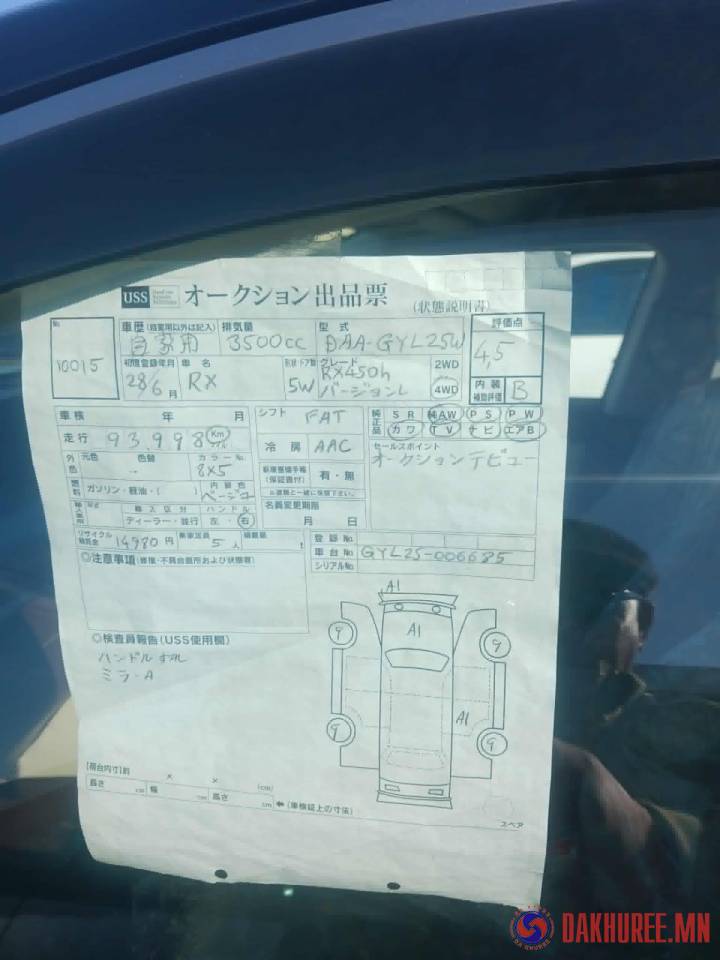 USS オークション出品票 (状態説明書)
No 10015
車歴(自家用以外は記入) 排気量 型式 評価点
自家用 3500cc DAA-GYL25W 4,5
初度登録年月 車名 形状・ドア数 グレード 2WD
28年6月 RX 5W RX450h バージョンL 4WD
内装補助評価 B
車検 年 月 シフト FAT 純正品 SR AW PS PW
カワ TV ナビ エアB
走行 93,998 Km 冷房 AAC セールスポイント
オークションデビュー
外色 元色 色替 カラーNo.
8X5
新車整備手帳(保証書付) 有・無
燃料 ガソリン・軽油・( ) 内装色 ベージュ
名義変更期限
月 日
輸入区分 ハンドル
ディーラー・並行 左・右
リサイクル預託金 14980円 乗車定員 5人 積載量 t
登録No.
車台No. GYL25-006685
シリアルNo.
◎注意事項(修復・不具合箇所および状態等)
◎検査員報告(USS使用欄)
ハンドルすれ
ミラーA
A1
A1
A1
9
9
9
9
【荷台内寸】約 × × (cm)
長さ cm 幅 cm 高さ cm ⇐(車検証上の寸法)
スペア
DAKHUREE.MN